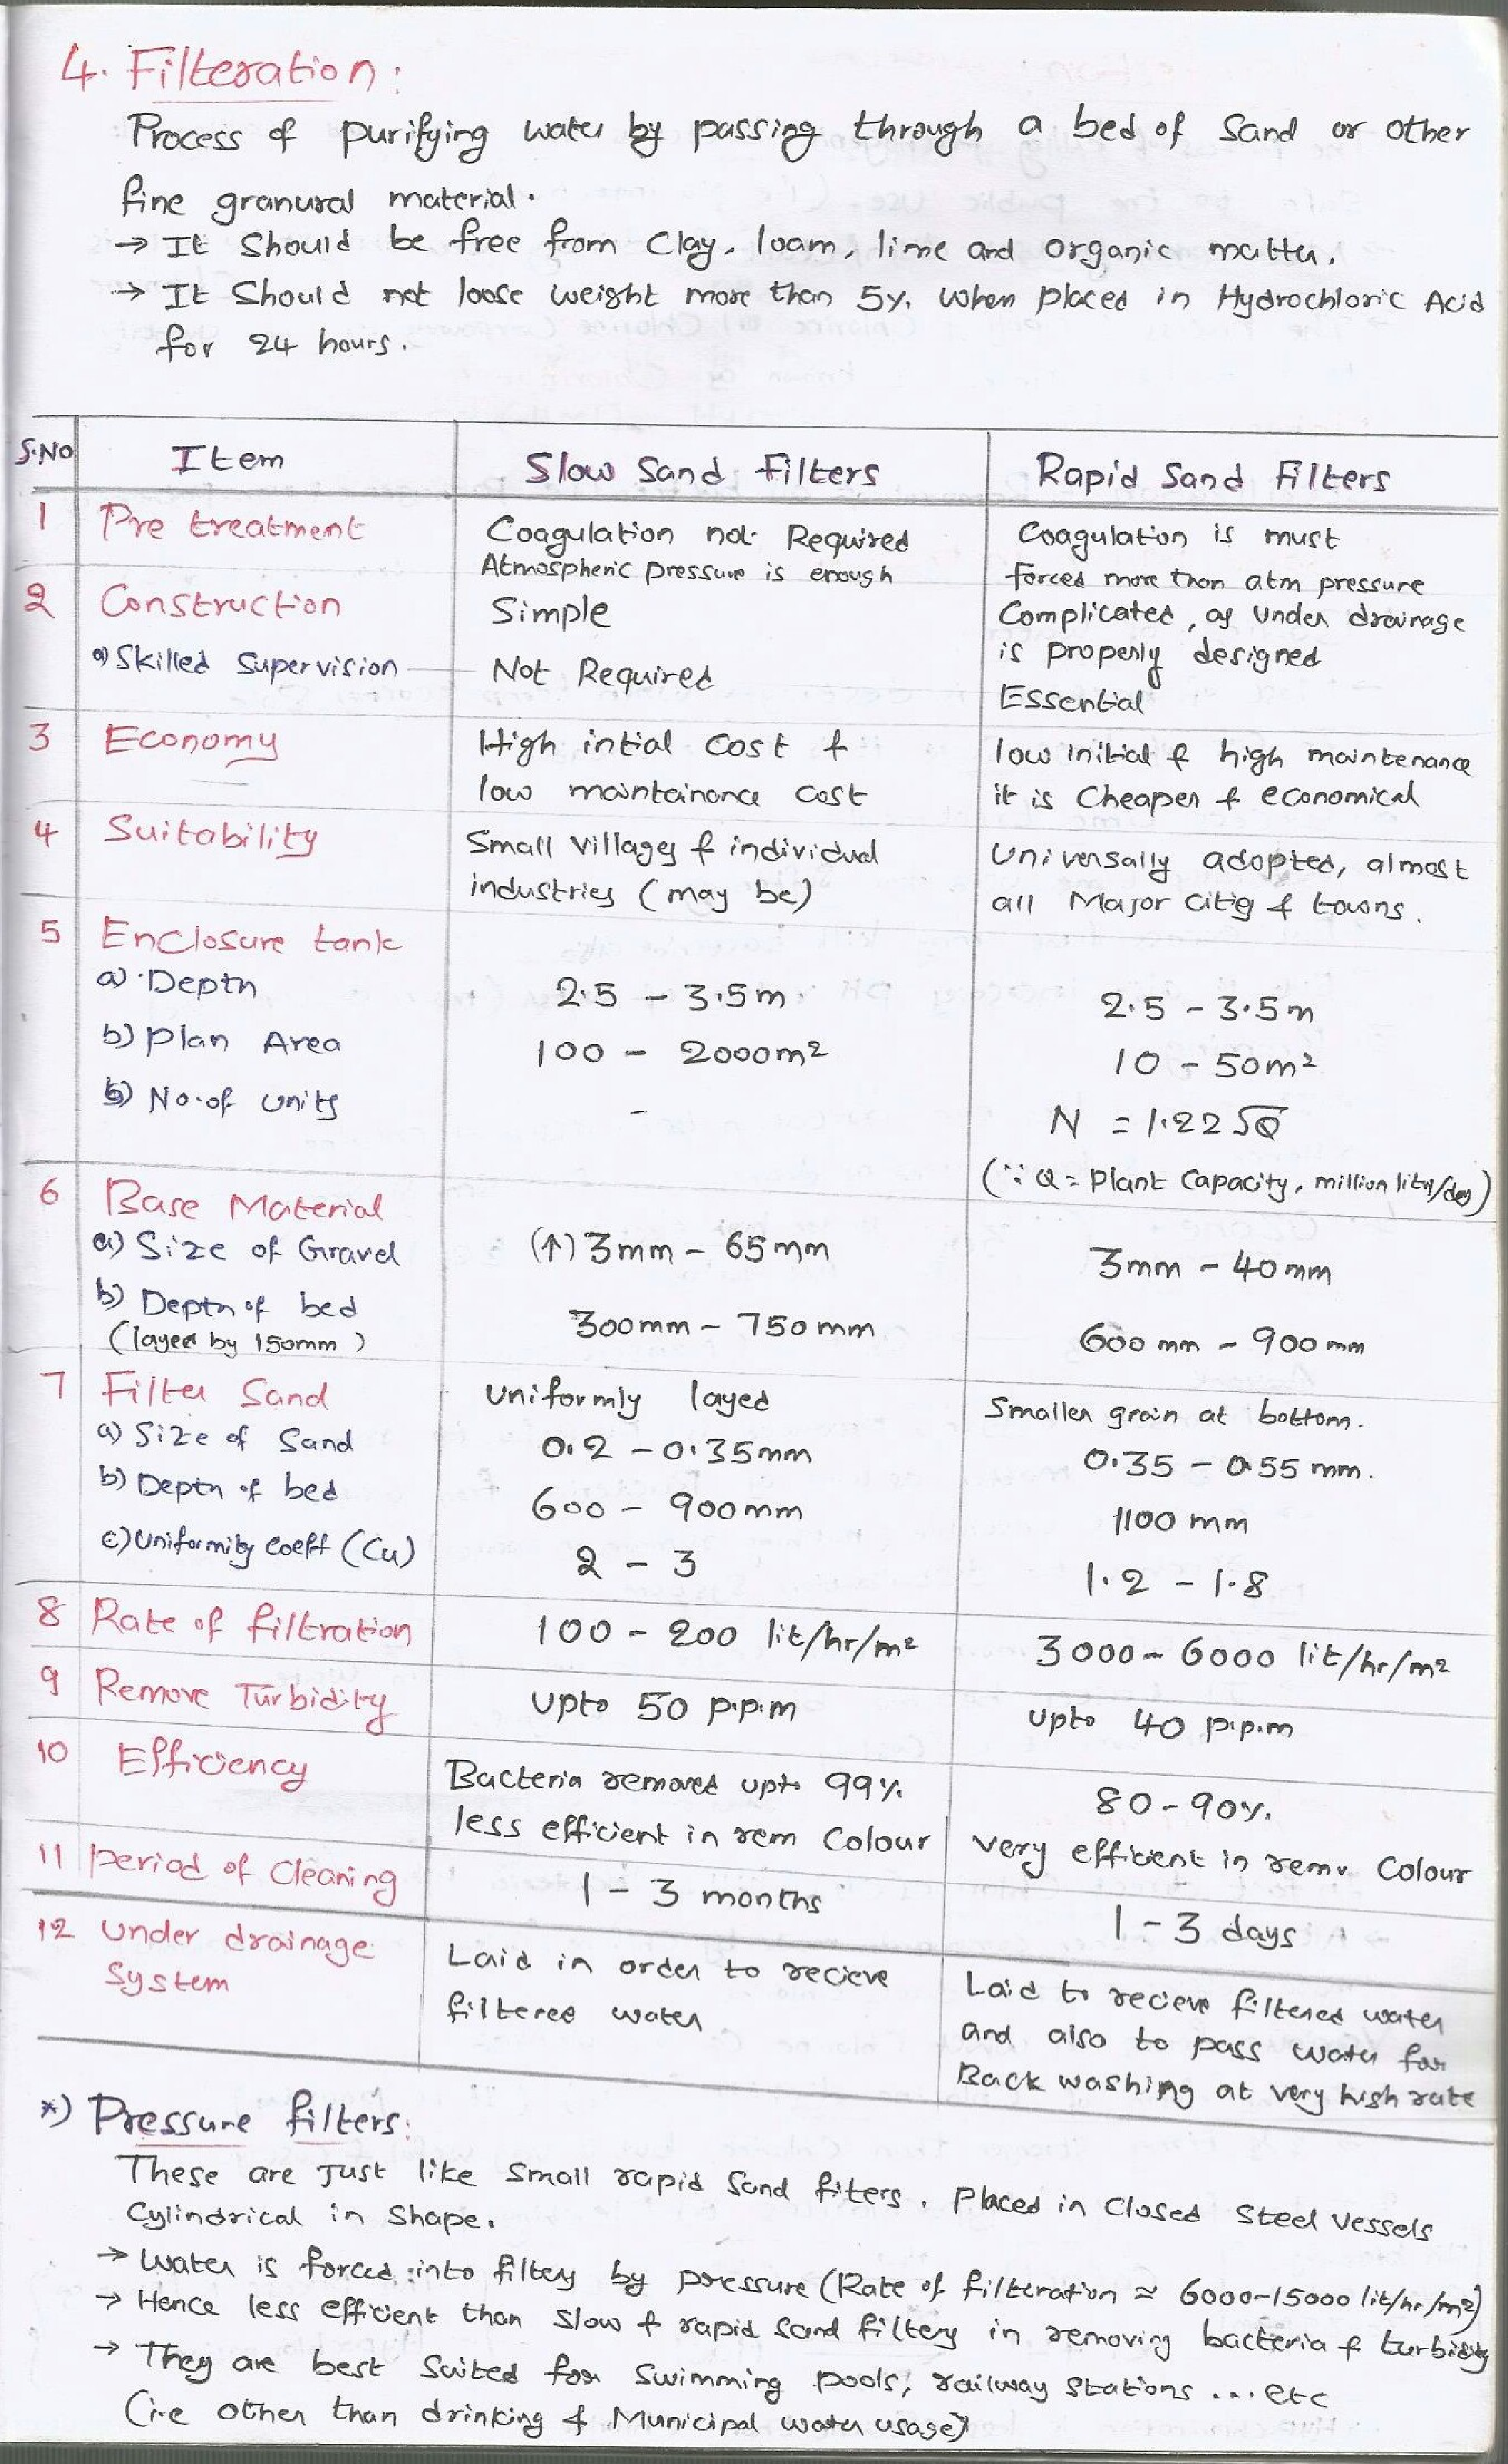 4. Filteration:
Process of purifying water by passing through a bed of Sand or other
fine granural material.
→ It Should be free from Clay, loam, lime and organic matter.
→ It Should not loose weight more than 5%. when placed in Hydrochloric Acid
for 24 hours.
S.No Item Slow Sand Filters Rapid Sand Filters
1 Pre treatment Coagulation not Required Coagulation is must
Atmospheric pressure is enough forced more than atm pressure
2 Construction Simple Complicated, as under drainage
is properly designed
a) Skilled Supervision Not Required Essential
3 Economy High intial cost & low initial & high maintenance
low maintainance cost it is Cheaper & economical
4 Suitability Small villages & individual Universally adopted, almost
industries (may be) all Major cities & towns.
5 Enclosure tank
a) Depth 2.5 - 3.5m 2.5 - 3.5m
b) Plan Area 100 - 2000m² 10 - 50m²
b) No. of units - N = 1.22 √Q
(∵ Q = Plant Capacity, million liters/day)
6 Base Material
a) Size of Gravel (↑) 3mm - 65mm 3mm - 40mm
b) Depth of bed 300mm - 750mm 600mm - 900mm
(layed by 150mm)
7 Filter Sand Uniformly layed Smaller grain at bottom.
a) Size of Sand 0.2 - 0.35mm 0.35 - 0.55 mm.
b) Depth of bed 600 - 900mm 1100 mm
c) Uniformity coeff (Cu) 2 - 3 1.2 - 1.8
8 Rate of filtration 100 - 200 lit/hr/m² 3000 - 6000 lit/hr/m²
9 Remove Turbidity upto 50 p.p.m upto 40 p.p.m
10 Efficiency Bacteria removed upto 99% 80-90%.
less efficient in rem Colour very efficent in remv Colour
11 period of Cleaning 1 - 3 months 1 - 3 days
12 Under drainage Laid in order to recieve Laid to recieve filtered water
System filtered water and also to pass water for
Back washing at very high rate
*) Pressure filters:
These are Just like Small rapid Sand fiters. Placed in Closed Steel Vessels
Cylindrical in Shape.
→ Water is forced into filters by pressure (Rate of filteration ≈ 6000-15000 lit/hr/m²)
→ Hence less efficient than Slow & rapid Sand filters in removing bacteria & turbidity
→ They are best Suited for Swimming pools, railway Stations ... etc
(i.e other than drinking & Municipal water usage)